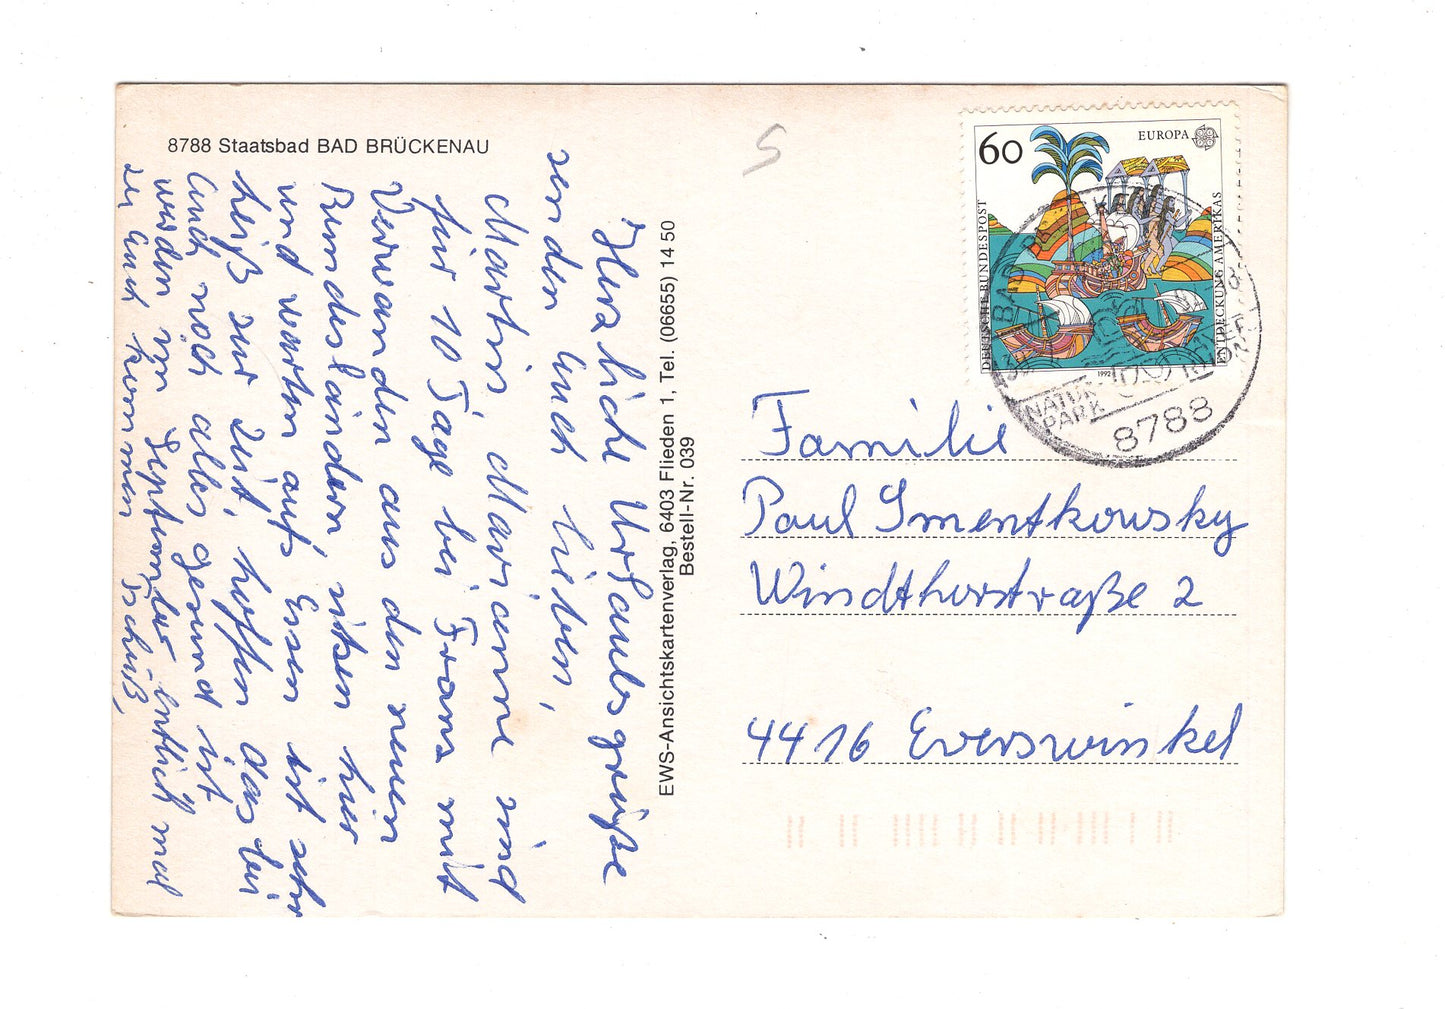 8788 Staatsbad BAD BRÜCKENAU
Herzliche Urlaubsgrüße
senden Euch lieben,
Martin, Marianne sind
für 10 Tage bei Franz mit
Verwandten aus den neuen
Bundesländern, sitzen hier
und warten auf's Essen ist sehr
heiß zur Zeit, hoffen das bei
Euch noch alles gesund ist
werden im September endlich mal
zu Euch kommen Tschüß,
EWS-Ansichtskartenverlag, 6403 Flieden 1, Tel. (06655) 14 50
Bestell-Nr. 039
5
60
EUROPA
DEUTSCHE BUNDESPOST
ENTDECKUNG AMERIKAS
1992
BAD
NATUR
PARK
8788
Familie
Paul Smentkowsky
Windthorstraße 2
4416 Everswinkel